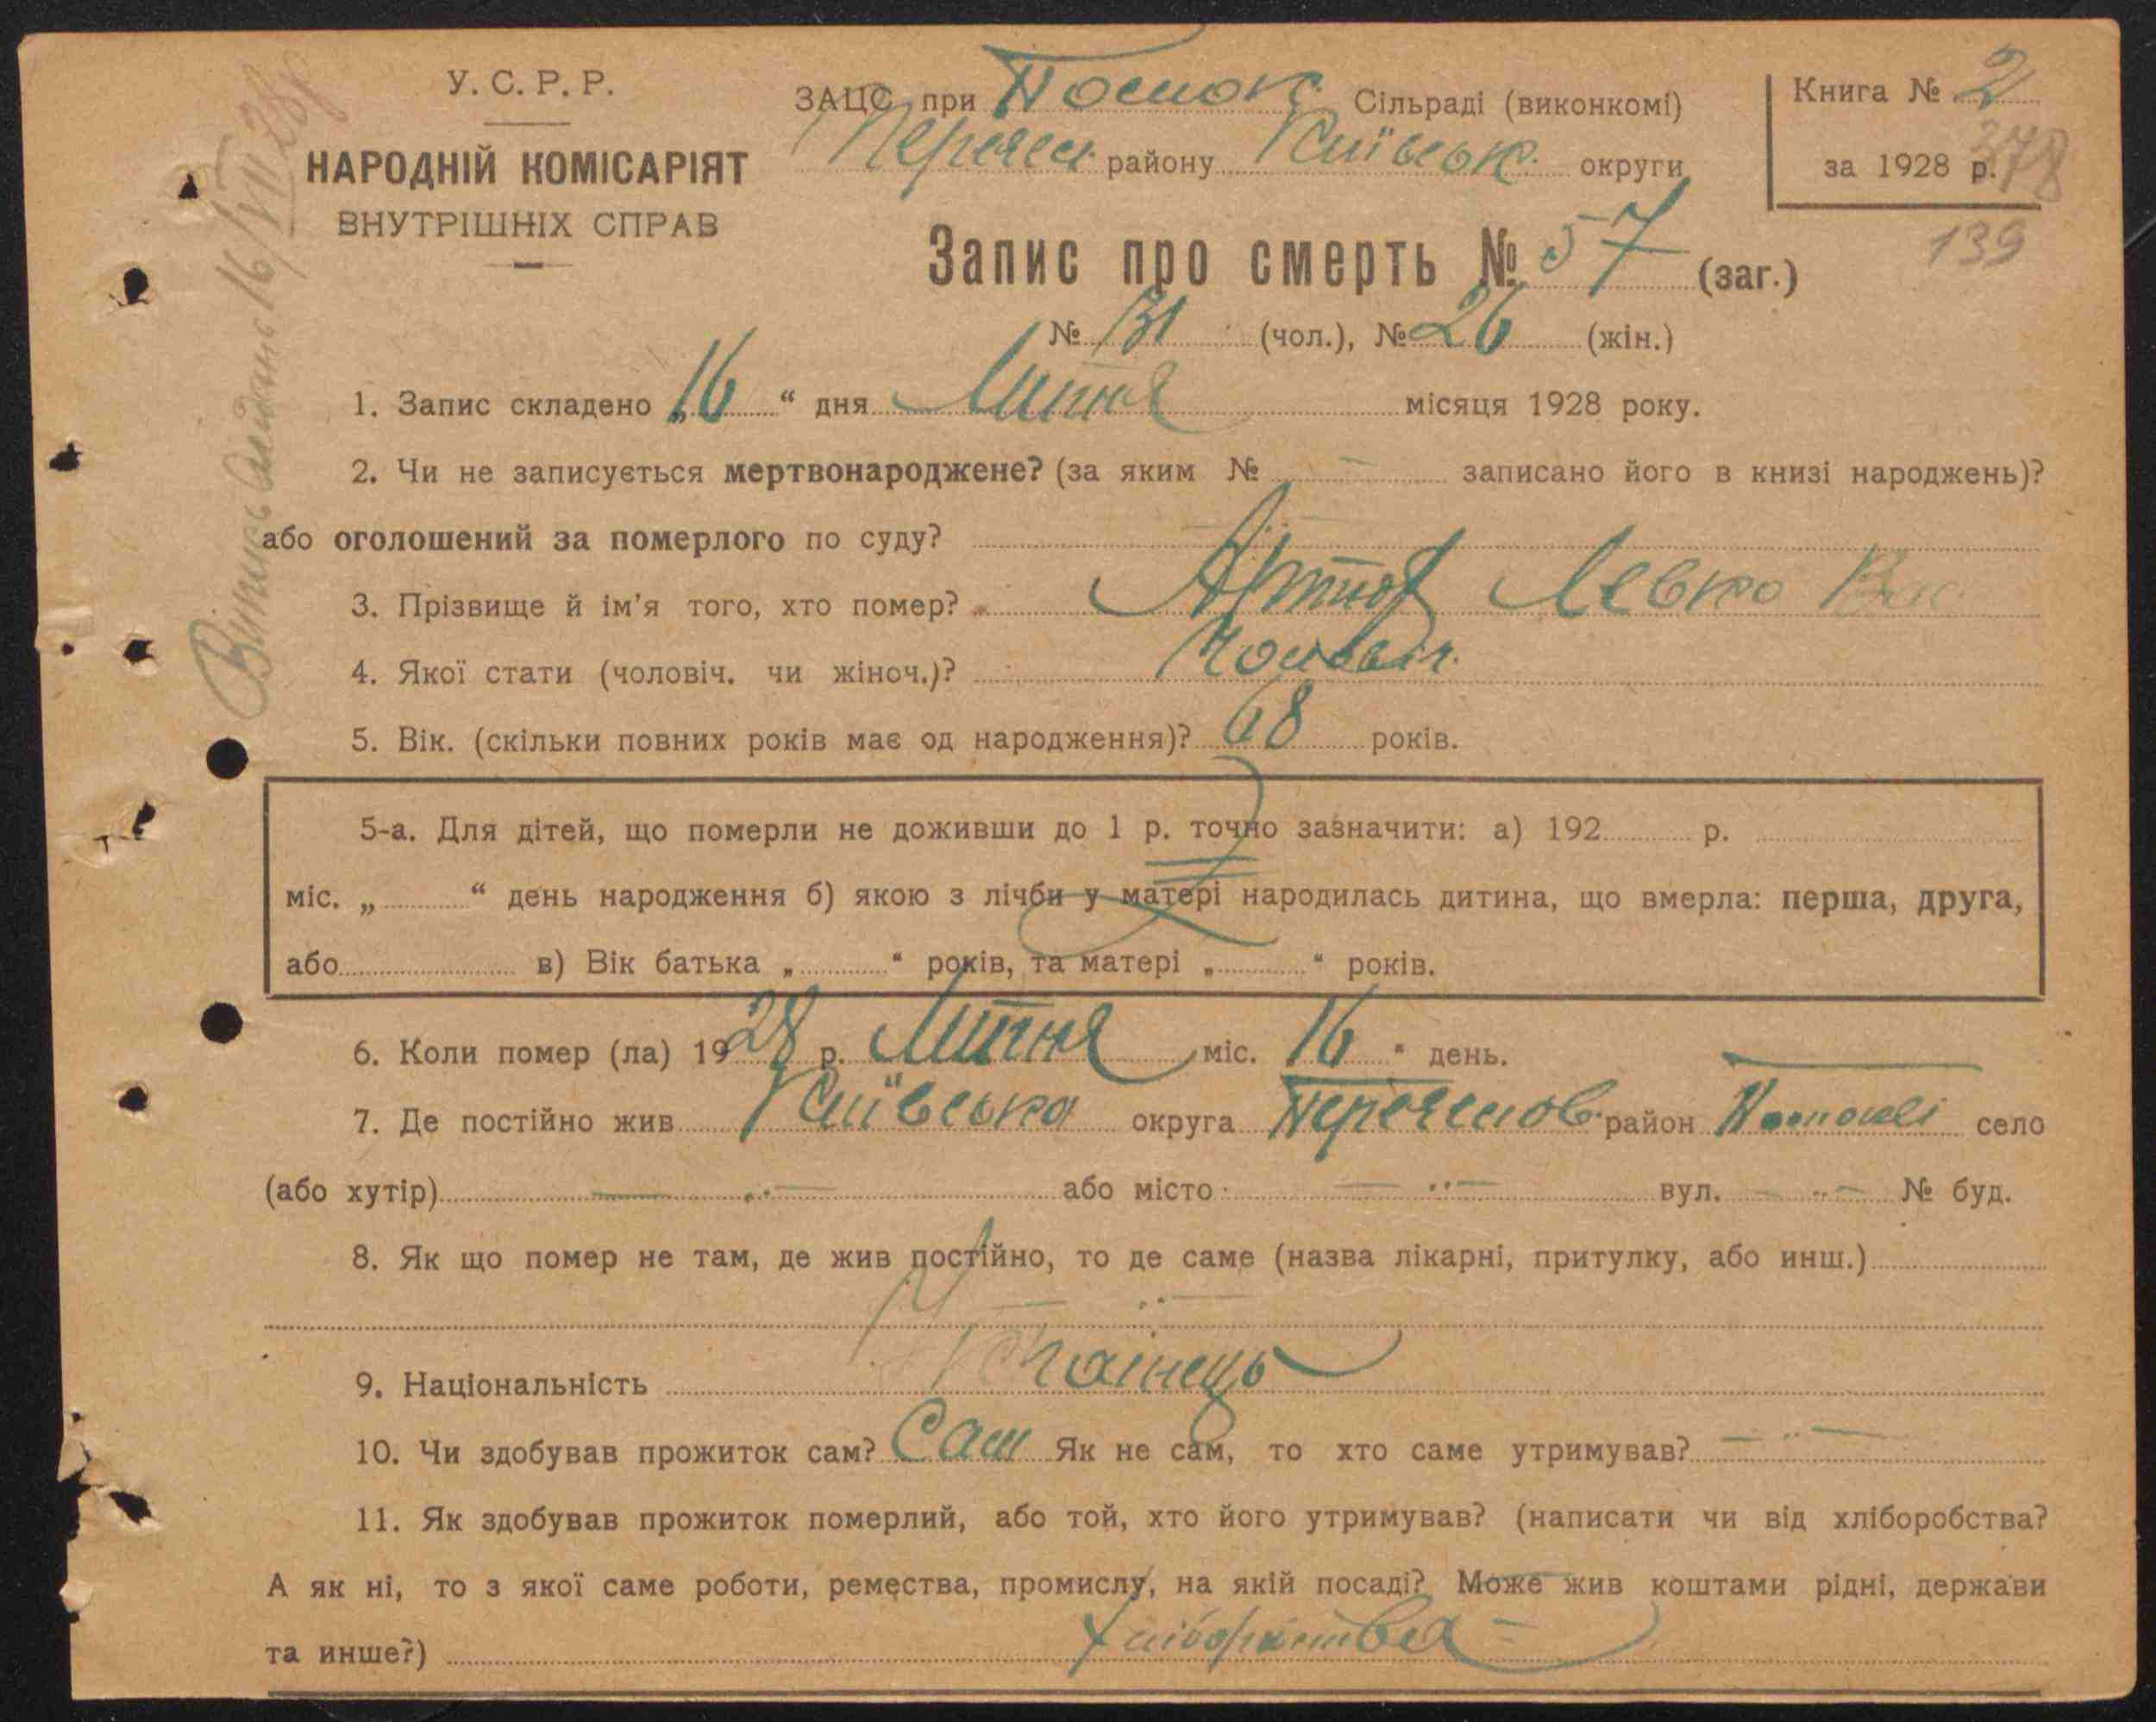 У. С. Р. Р.
НАРОДНІЙ КОМІСАРІЯТ
ВНУТРІШНІХ СПРАВ
ЗАЦС при Сільраді (виконкомі)
району Київськ. округи
Книга № 2
за 1928 р.
378
139
Запис про смерть № 57 (заг.)
№ 31 (чол.), № 26 (жін.)
1. Запис складено „16“ дня Липня місяця 1928 року.
2. Чи не записується мертвонароджене? (за яким № — записано його в книзі народжень)?
або оголошений за померлого по суду?
3. Прізвище й ім'я того, хто помер? Левко
4. Якої стати (чоловіч. чи жіноч.)? Чоловіч.
5. Вік. (скільки повних років має од народження)? 68 років.
5-а. Для дітей, що померли не доживши до 1 р. точно зазначити: а) 192 р.
міс. „ “ день народження б) якою з лічби у матері народилась дитина, що вмерла: перша, друга,
або в) Вік батька „ “ років, та матері „ “ років.
6. Коли помер (ла) 1928 р. Липня міс. 16 “ день.
7. Де постійно жив Київська округа район село
(або хутір) — „ — або місто — „ — вул. — „ — № буд.
8. Як що помер не там, де жив постійно, то де саме (назва лікарні, притулку, або инш.)
— „ —
9. Національність
10. Чи здобував прожиток сам? Сам Як не сам, то хто саме утримував? — „ —
11. Як здобував прожиток померлий, або той, хто його утримував? (написати чи від хліборобства?
А як ні, то з якої саме роботи, ремества, промислу, на якій посаді? Може жив коштами рідні, держави
та инше?) хліборобства
Випись 16/VII 28р